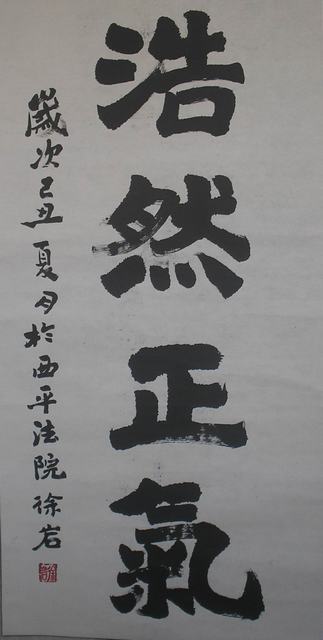 浩然正氣
歲次己丑夏月於西平法院徐岩